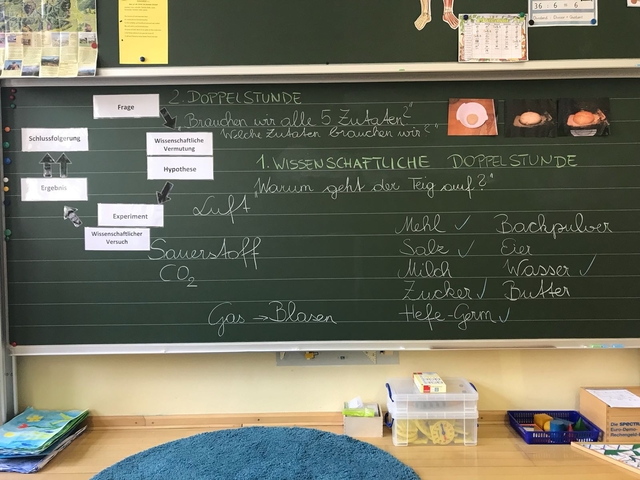 Frage
Wissenschaftliche
Vermutung
Hypothese
Experiment
Wissenschaftlicher
Versuch
Ergebnis
Schlussfolgerung
2. DOPPELSTUNDE
„Brauchen wir alle 5 Zutaten?"
Welche Zutaten brauchen wir?"
1. WISSENSCHAFTLICHE DOPPELSTUNDE
„Warum geht der Teig auf?"
Luft
Sauerstoff
CO₂
Gas → Blasen
Mehl ✓ Backpulver
Salz ✓ Eier
Milch Wasser ✓
Zucker ✓ Butter
Hefe-Germ ✓
36 : 6 = 6